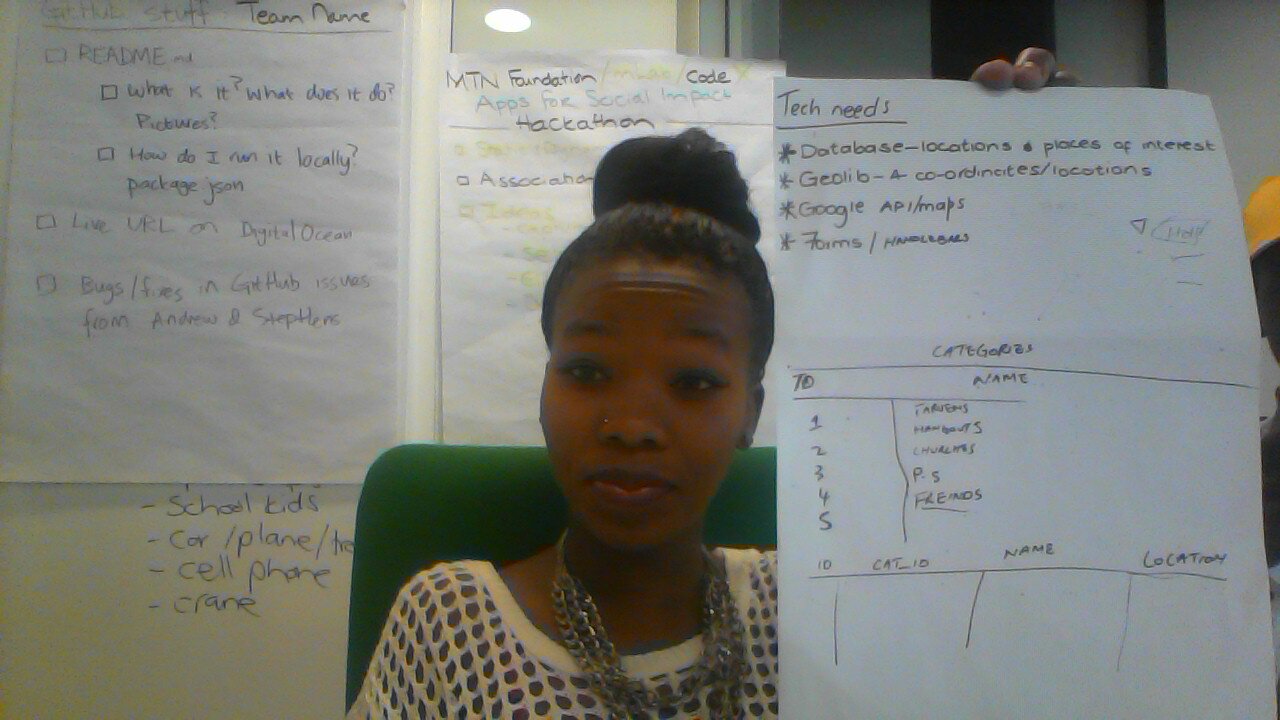 GitHub Stuff: Team Name
README.md
What is it? What does it do?
Pictures?
How do I run it locally?
package.json
Live URL on Digital Ocean
Bugs/fixes in GitHub issues
from Andrew & Stephens
- School kids
- car/plane/
- cell phone
- crane
MTN Foundation/mLab/Code X
Apps for Social Impact
Hackathon
Association
Ideas
Tech needs
* Database-locations & places of interest
* Geolib-A co-ordinates/locations
* Google API/maps
* Forms/HANDLEBARS
CATEGORIES
ID NAME
1 TARVENS
HANGOUTS
2 CHURCHES
3 P.S
4 FREINDS
5
ID CAT_ID NAME LOCATION